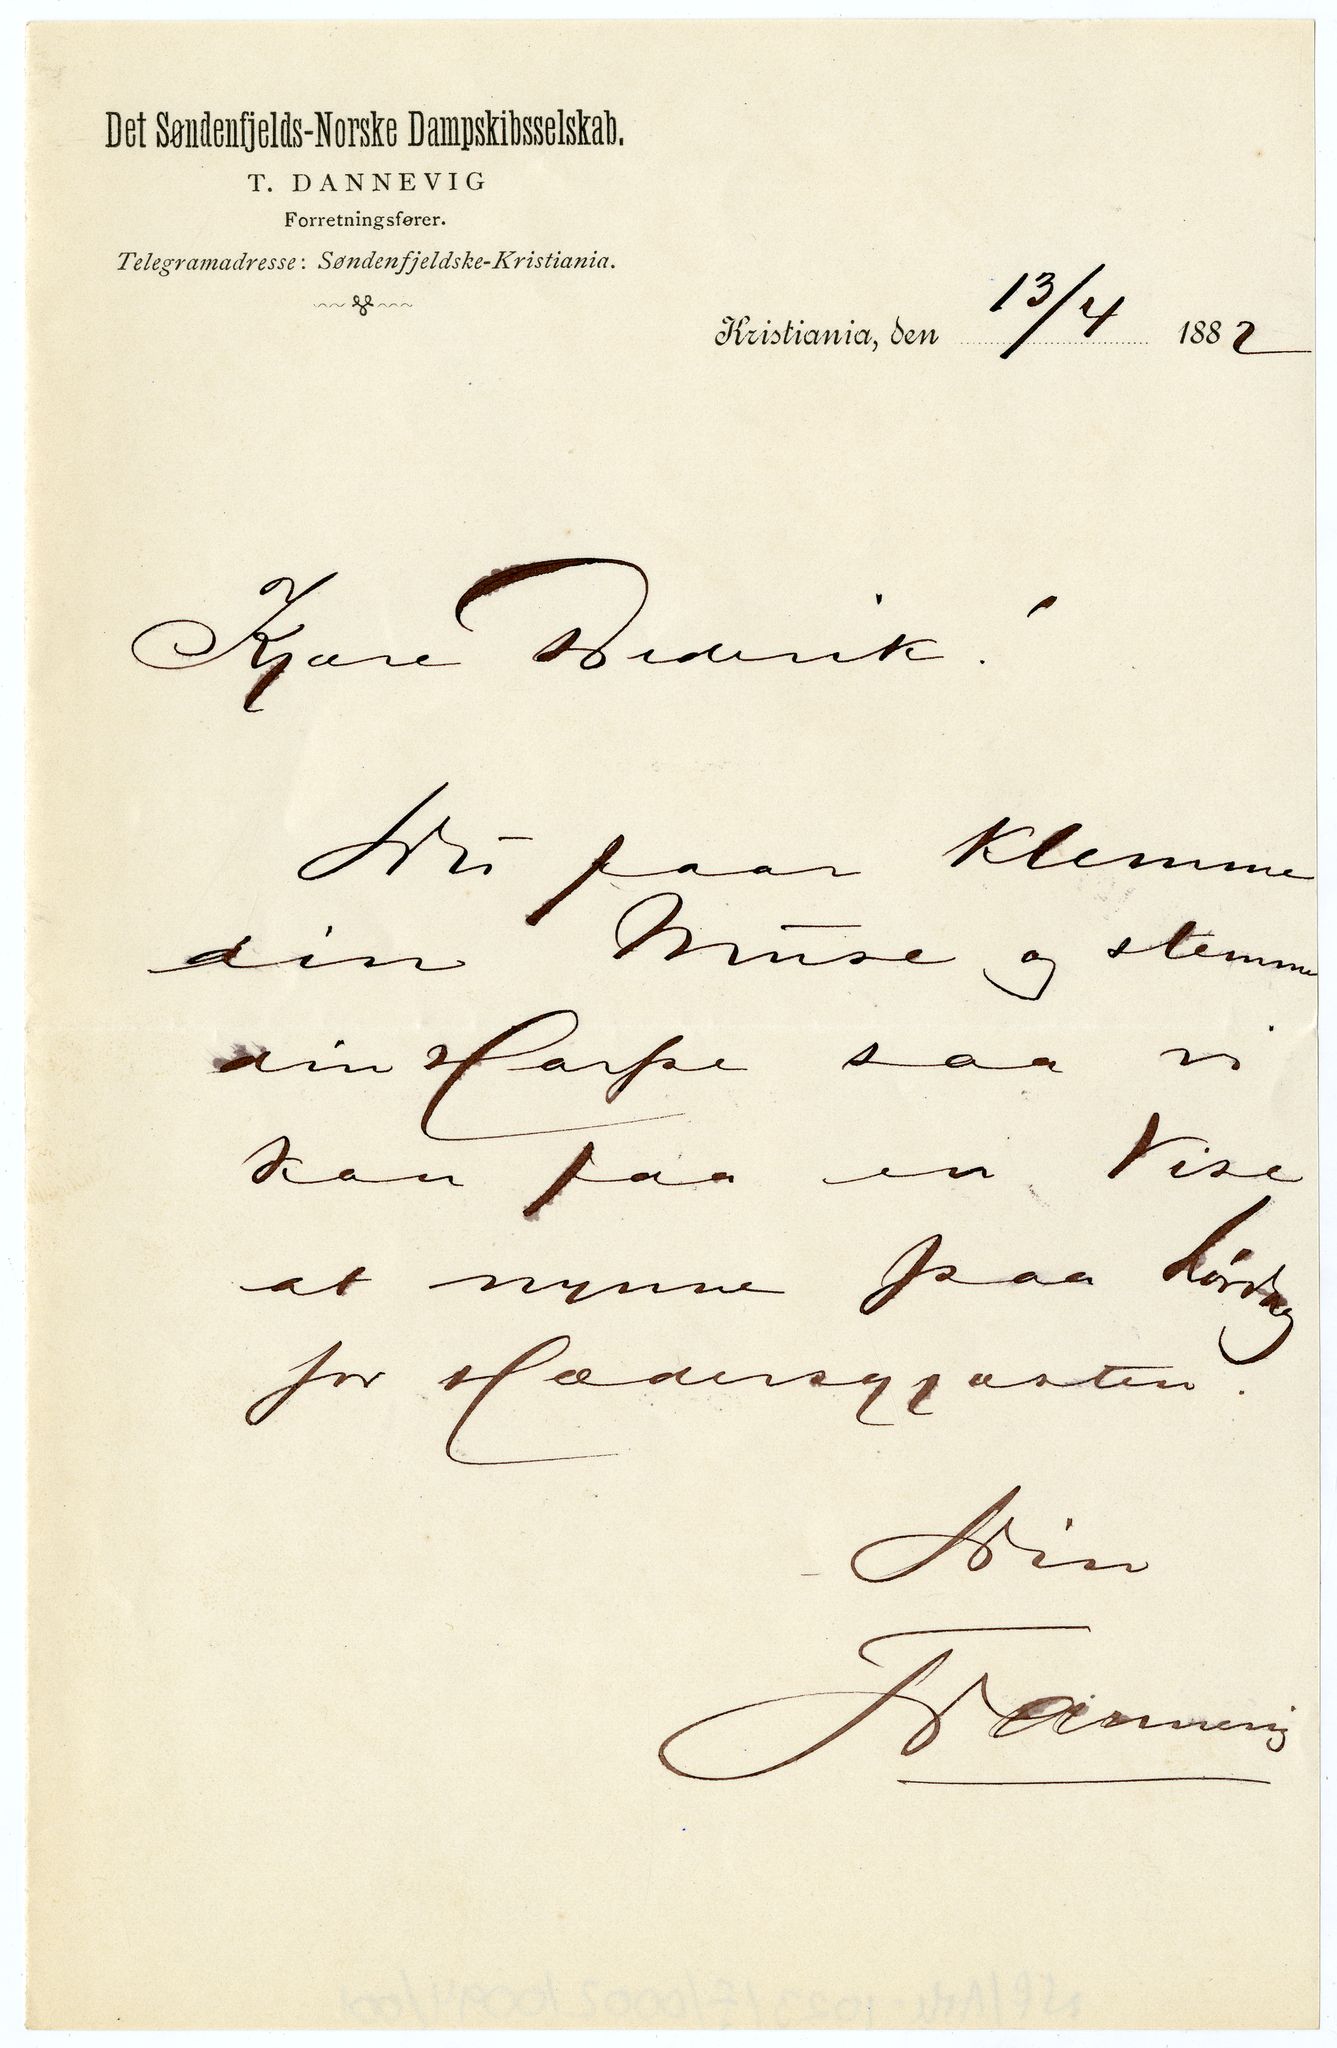 Det Søndenfjelds-Norske Dampskibsselskab.
T. DANNEVIG
Forretningsfører.
Telegramadresse: Søndenfjeldske-Kristiania.
Kristiania, den 13/4 1882
Kjære Diderik!
Du faar klemme
din Muse og stemme
din Harpe saa vi
kan faa en Vise
at nynne paa Lørdag
for Hædersgjæsten.
Din
TDannevig